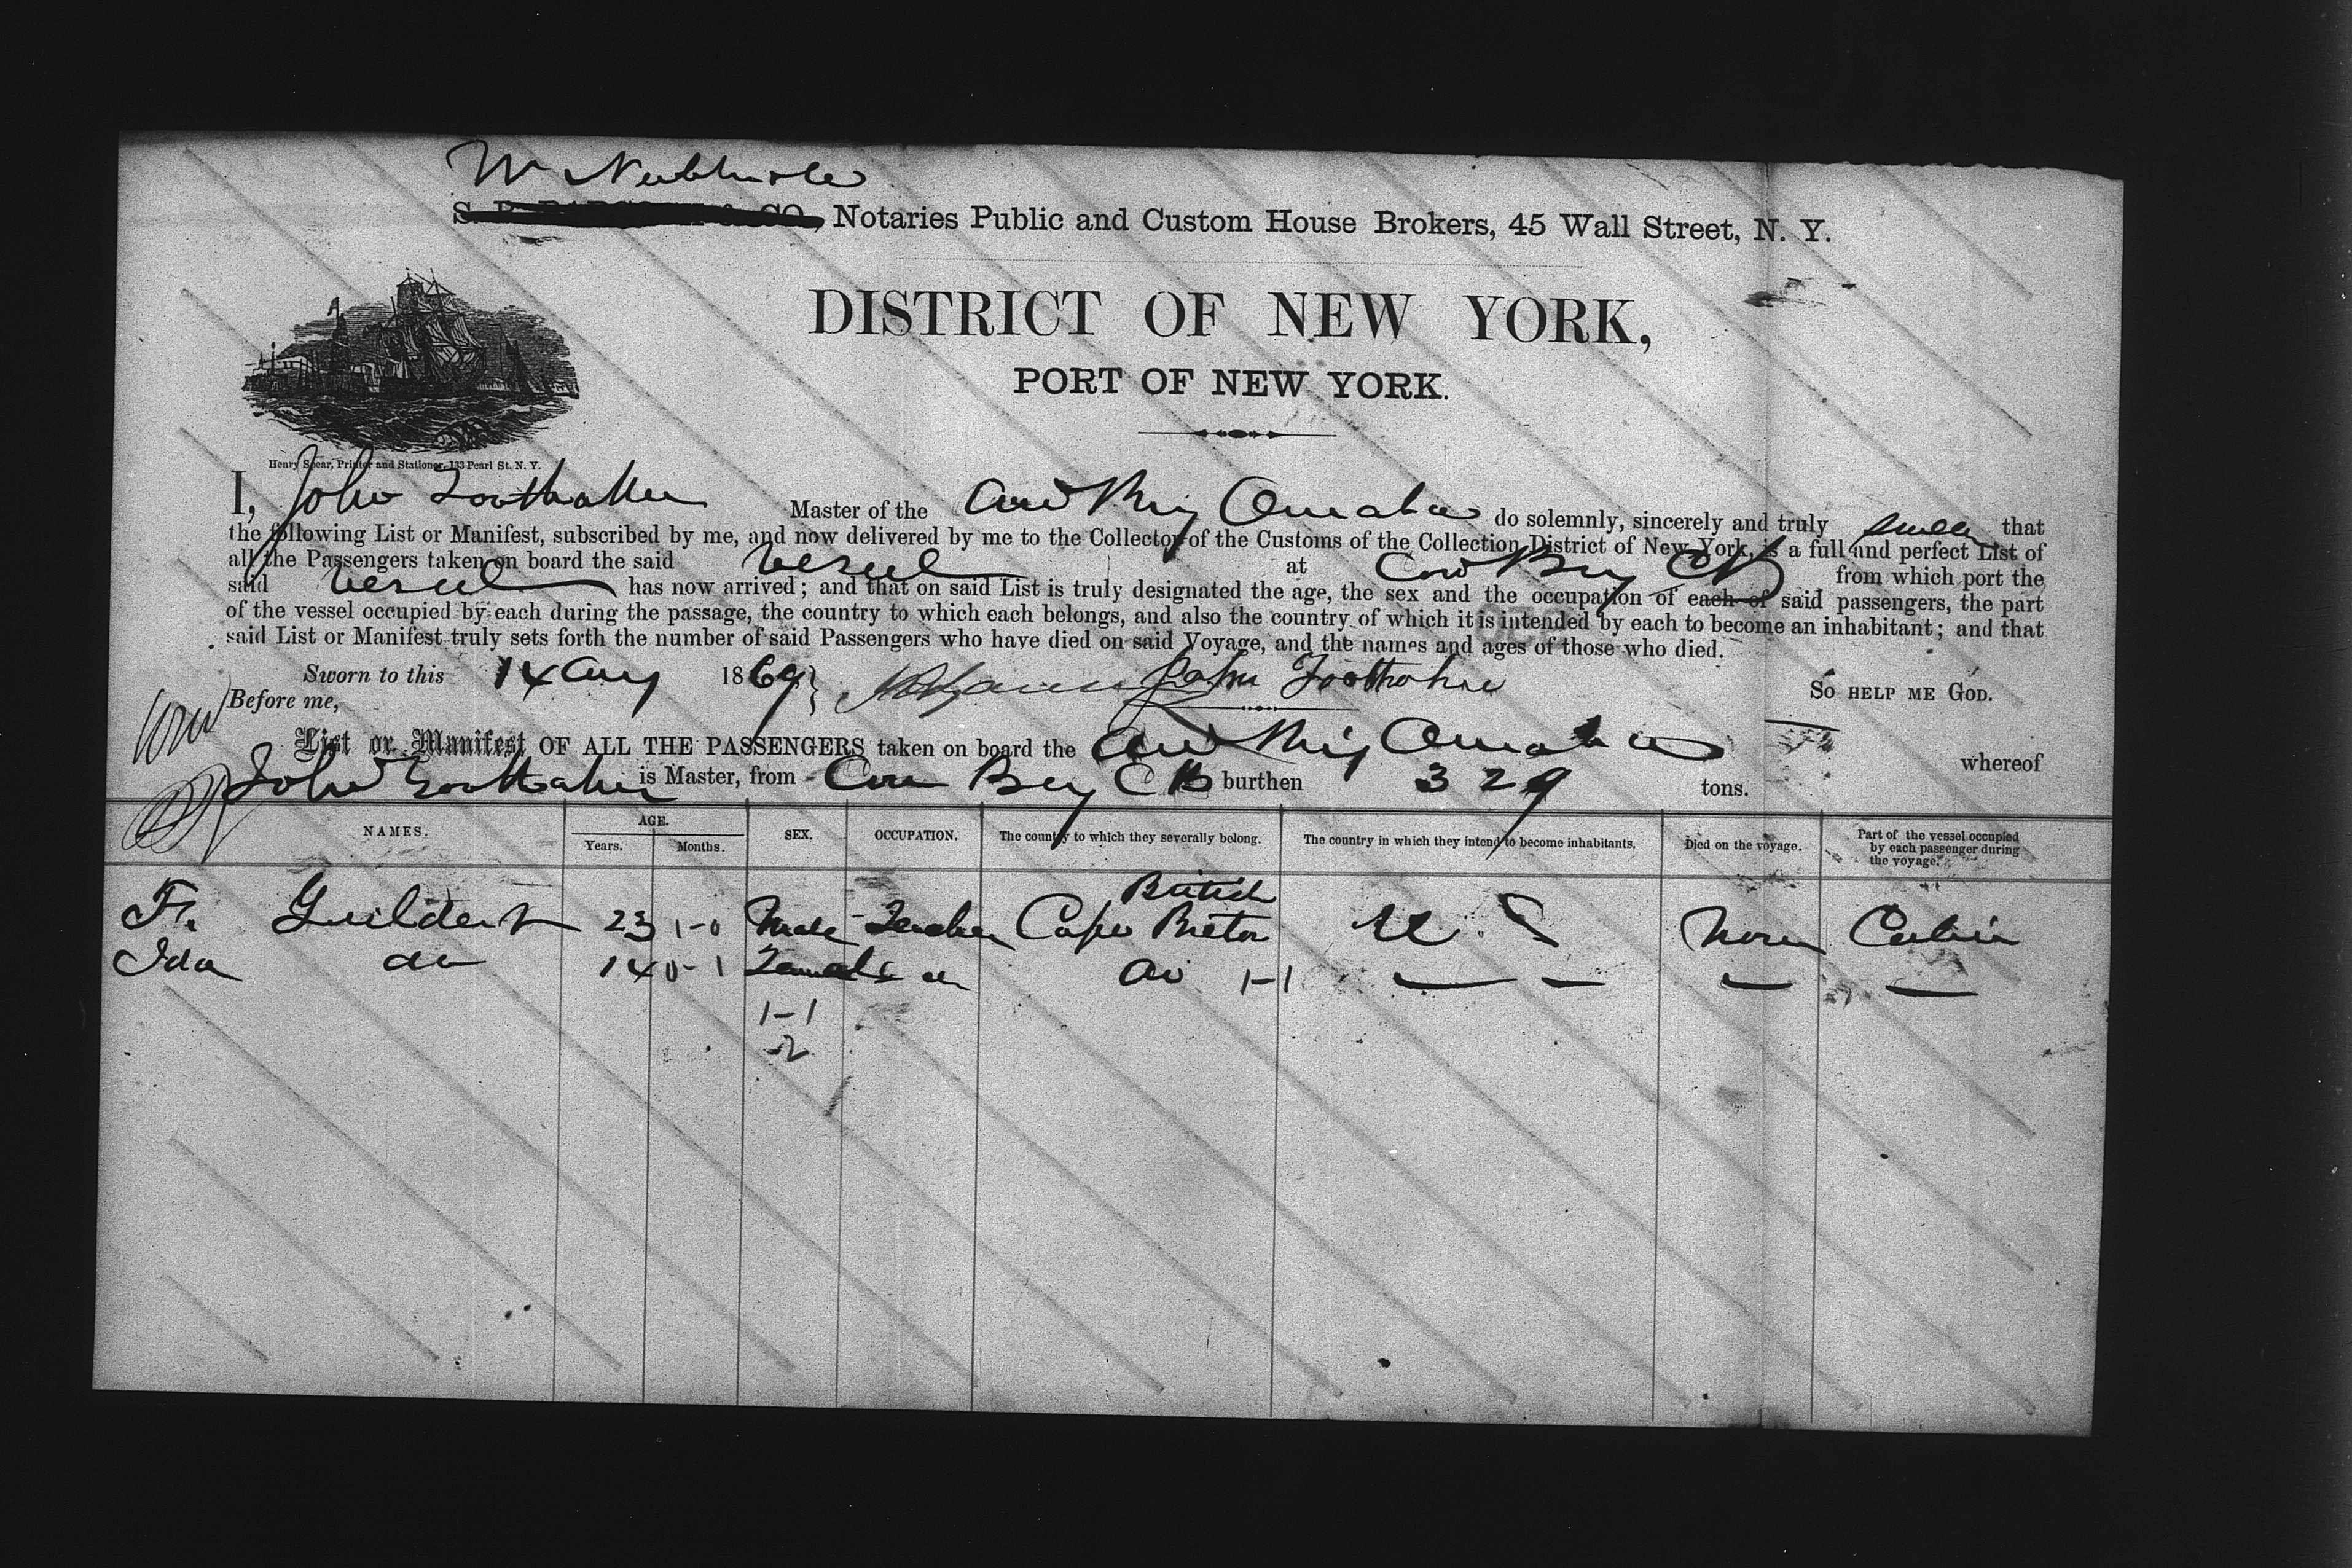 Notaries Public and Custom House Brokers, 45 Wall Street, N. Y.
DISTRICT OF NEW YORK,
PORT OF NEW YORK.
Henry Spear, Printer and Stationer, 133 Pearl St. N. Y.
I, John Toothaker Master of the Am Brig Omaha do solemnly, sincerely and truly swear that
the following List or Manifest, subscribed by me, and now delivered by me to the Collector of the Customs of the Collection District of New York, is a full and perfect List of
all the Passengers taken on board the said Vessel at Cow Bay CB from which port the
said Vessel has now arrived; and that on said List is truly designated the age, the sex and the occupation of each of said passengers, the part
of the vessel occupied by each during the passage, the country to which each belongs, and also the country of which it is intended by each to become an inhabitant; and that
said List or Manifest truly sets forth the number of said Passengers who have died on said Voyage, and the names and ages of those who died.
Sworn to this 14 Aug 1869 John Toothaker So HELP ME GOD.
Before me,
List or Manifest OF ALL THE PASSENGERS taken on board the Am Brig Omaha whereof
John Toothaker is Master, from Cow Bay CB burthen 329 tons.
NAMES. AGE. Years. Months. SEX. OCCUPATION. The country to which they severally belong. The country in which they intend to become inhabitants. Died on the voyage. Part of the vessel occupied by each passenger during the voyage.
British
Fr Guildert 23 1-0 Male Teacher Cape Breton U. S None Cabin
Ida do 14 0-1 Female do do 1-1
1-1
2